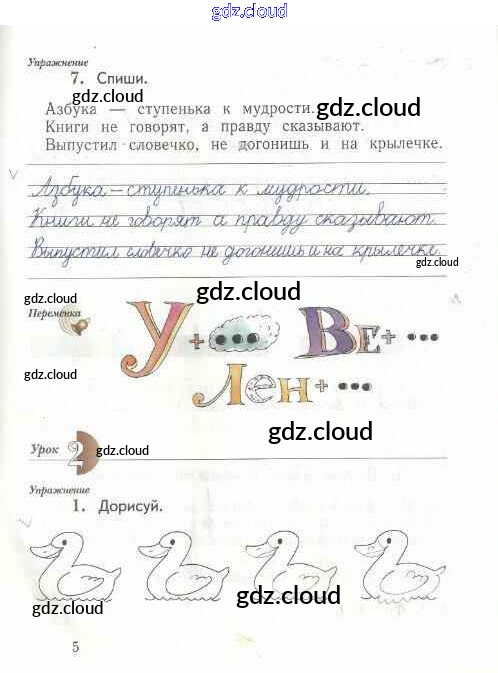 gdz.cloud
Упражнение
7. Спиши.
gdz.cloud
gdz.cloud
Азбука — ступенька к мудрости.
Книги не говорят, а правду сказывают.
Выпустил словечко, не догонишь и на крылечке.
Азбука – ступинька к мудрости.
Книги не говорят а правду сказывают.
Выпустил словечко не догонишь и на крылечке.
gdz.cloud
gdz.cloud
gdz.cloud
Переменка
У + ••• Ве + •••
gdz.cloud
Лен + •••
gdz.cloud
Урок 2
gdz.cloud
Упражнение
1. Дорисуй.
gdz.cloud
gdz.cloud
gdz.cloud
gdz.cloud
5